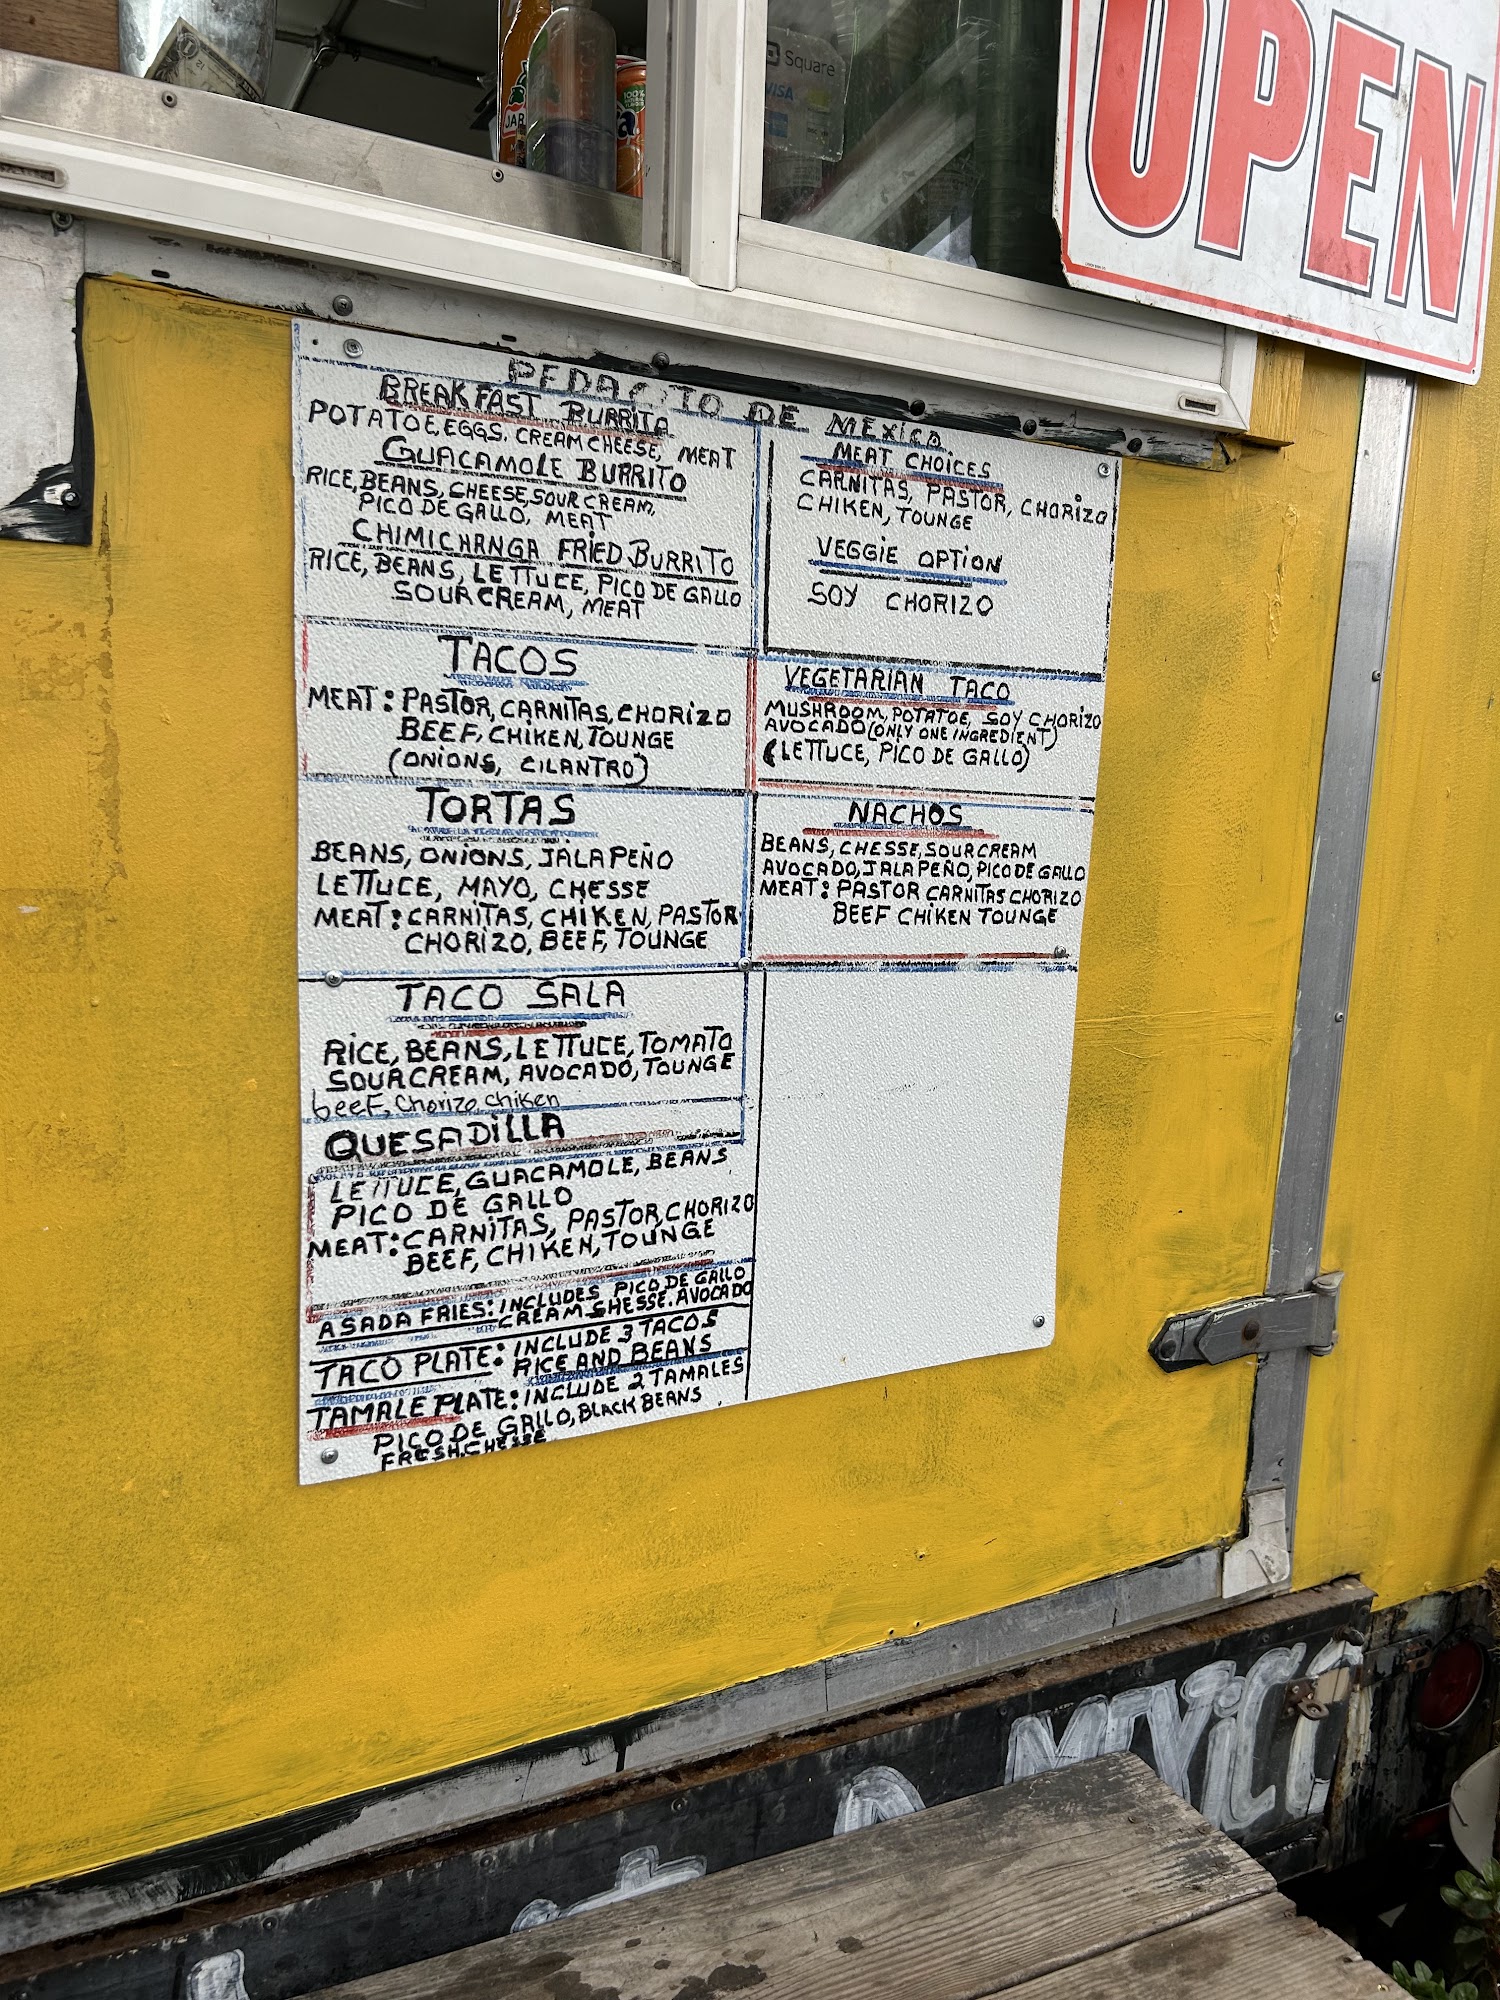 Square
VISA
JAR
100%
OPEN
PEDACITO DE MEXICO
BREAKFAST BURRITA
POTATOE, EGGS, CREAM CHEESE, MEAT
GUACAMOLE BURRITO
RICE, BEANS, CHEESE, SOUR CREAM,
PICO DE GALLO, MEAT
CHIMICHANGA FRIED BURRITO
RICE, BEANS, LETTUCE, PICO DE GALLO
SOUR CREAM, MEAT
MEAT CHOICES
CARNITAS, PASTOR, CHORIZO
CHIKEN, TOUNGE
VEGGIE OPTION
SOY CHORIZO
TACOS
MEAT: PASTOR, CARNITAS, CHORIZO
BEEF, CHIKEN, TOUNGE
(ONIONS, CILANTRO)
VEGETARIAN TACO
MUSHROOM, POTATOE, SOY CHORIZO
AVOCADO (ONLY ONE INGREDIENT)
(LETTUCE, PICO DE GALLO)
TORTAS
BEANS, ONIONS, JALAPEÑO
LETTUCE, MAYO, CHESSE
MEAT: CARNITAS, CHIKEN, PASTOR
CHORIZO, BEEF, TOUNGE
NACHOS
BEANS, CHESSE, SOUR CREAM
AVOCADO, JALAPEÑO, PICO DE GALLO
MEAT: PASTOR CARNITAS CHORIZO
BEEF CHIKEN TOUNGE
TACO SALA
RICE, BEANS, LETTUCE, TOMATO
SOUR CREAM, AVOCADO, TOUNGE
beeF, Chorizo chiken
QUESADILLA
LETTUCE, GUACAMOLE, BEANS
PICO DE GALLO
MEAT: CARNITAS, PASTOR, CHORIZO
BEEF, CHIKEN, TOUNGE
ASADA FRIES: INCLUDES PICO DE GALLO
CREAM SHESSE. AVOCADO
TACO PLATE: INCLUDE 3 TACOS
RICE AND BEANS
TAMALE PLATE: INCLUDE 2 TAMALES
PICO DE GALLO, BLACK BEANS
FRESH CHESSE
MEXICO